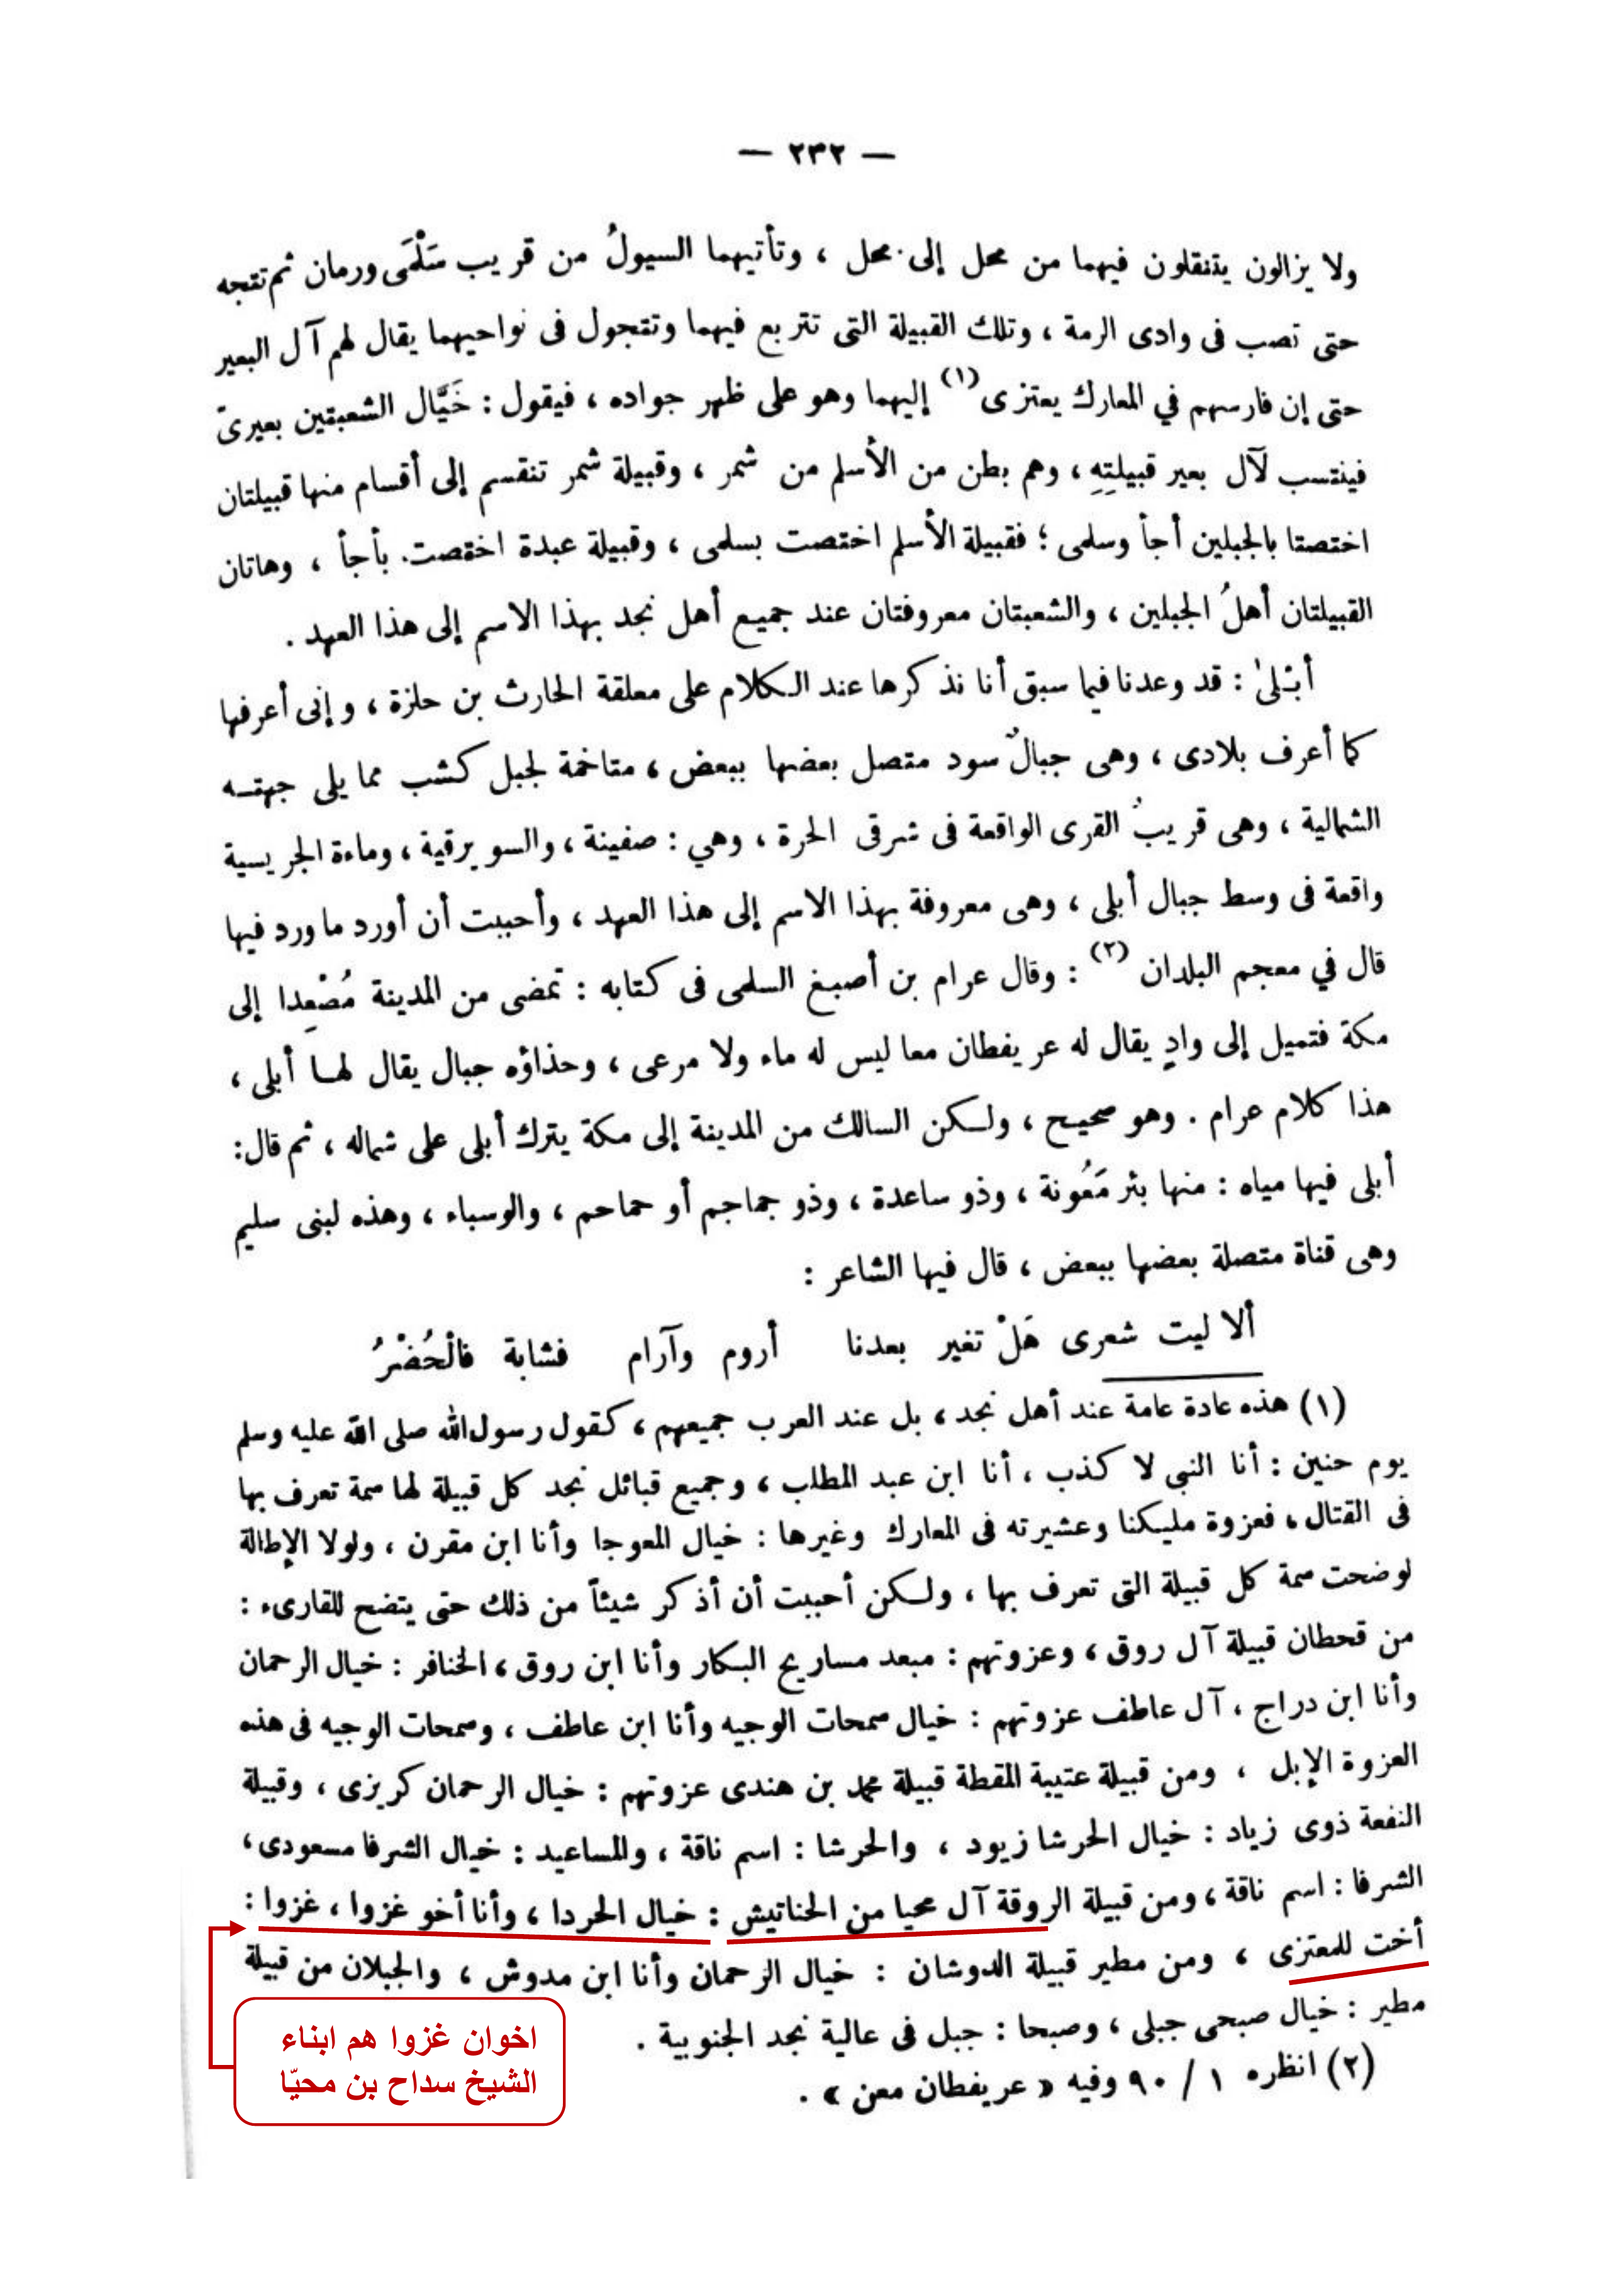 — ٢٣٢ —
ولا يزالون يتنقلون فيهما من محل إلى محل ، وتأتيهما السيولُ من قريب سَلْمَى ورمان ثم تتجه
حتى تصب فى وادى الرمة ، وتلك القبيلة التى تتربع فيهما وتتجول فى نواحيهما يقال لهم آل البعير
حتى إن فارسهم في المعارك يعتزى (١) إليهما وهو على ظهر جواده ، فيقول : خَيَّال الشعبتين بعيرىّ
فينتسب لآل بعير قبيلتِهِ ، وهم بطن من الأسلم من شمر ، وقبيلة شمر تنقسم إلى أقسام منها قبيلتان
اختصتا بالجبلين أجأ وسلمى ؛ فقبيلة الأسلم اختصت بسلمى ، وقبيلة عبدة اختصت. بأجأ ، وهاتان
القبيلتان أهلُ الجبلين ، والشعبتان معروفتان عند جميع أهل نجد بهذا الاسم إلى هذا العهد .
أبْلىٰ : قد وعدنا فيما سبق أنا نذكرها عند الكلام على معلقة الحارث بن حلزة ، وإنى أعرفها
كما أعرف بلادى ، وهى جبالٌ سود متصل بعضها ببعض ، متاخمة لجبل كشب مما يلى جهته
الشمالية ، وهى قريبُ القرى الواقعة فى شرقى الحرة ، وهي : صفينة ، والسويرقية ، وماءة الجريسية
واقعة فى وسط جبال أبلى ، وهى معروفة بهذا الاسم إلى هذا العهد ، وأحببت أن أورد ما ورد فيها
قال في معجم البلدان (٢) : وقال عرام بن أصبغ السلمى فى كتابه : تمضى من المدينة مُصْعِدا إلى
مكة فتميل إلى وادٍ يقال له عريفطان معا ليس له ماء ولا مرعى ، وحذاؤه جبال يقال لها أبلى ،
هذا كلام عرام . وهو صحيح ، ولكن السالك من المدينة إلى مكة يترك أبلى على شماله ، ثم قال :
أبلى فيها مياه : منها بئر مَعُونة ، وذو ساعدة ، وذو جماجم أو حماحم ، والوسباء ، وهذه لبنى سليم
وهى قناة متصلة بعضها ببعض ، قال فيها الشاعر :
ألا ليت شعرى هَلْ تغير بعدنا أروم وآرام فشابة فالْحُضْرُ
(١) هذه عادة عامة عند أهل نجد ، بل عند العرب جميعهم ، كقول رسول الله صلى الله عليه وسلم
يوم حنين : أنا النبى لا كذب ، أنا ابن عبد المطلب ، وجميع قبائل نجد كل قبيلة لها سمة تعرف بها
فى القتال ، فعزوة مليكنا وعشيرته فى المعارك وغيرها : خيال العوجا وأنا ابن مقرن ، ولولا الإطالة
لوضحت سمة كل قبيلة التى تعرف بها ، ولكن أحببت أن أذكر شيئاً من ذلك حتى يتضح للقارىء :
من قحطان قبيلة آل روق ، وعزوتهم : مبعد مساريح البكار وأنا ابن روق ، الخنافر : خيال الرحمان
وأنا ابن دراج ، آل عاطف عزوتهم : خيال سمحات الوجيه وأنا ابن عاطف ، وسمحات الوجيه فى هذه
العزوة الإبل ، ومن قبيلة عتيبة المقطة قبيلة محمد بن هندى عزوتهم : خيال الرحمان كريزى ، وقبيلة
النفعة ذوى زياد : خيال الحرشا زيود ، والحرشا : اسم ناقة ، والمساعيد : خيال الشرفا مسعودى ،
الشرفا : اسم ناقة ، ومن قبيلة الروقة آل محيا من الحناتيش : خيال الحردا ، وأنا أخو غزوا ، غزوا :
أخت للمعتزى ، ومن مطير قبيلة الدوشان : خيال الرحمان وأنا ابن مدوش ، والجبلان من قبيلة
مطير : خيال صبحى جبلى ، وصبحا : جبل فى عالية نجد الجنوبية .
(٢) انظره ١ / ٩٠ وفيه « عريفطان معن » .
اخوان غزوا هم ابناء
الشيخ سداح بن محيّا